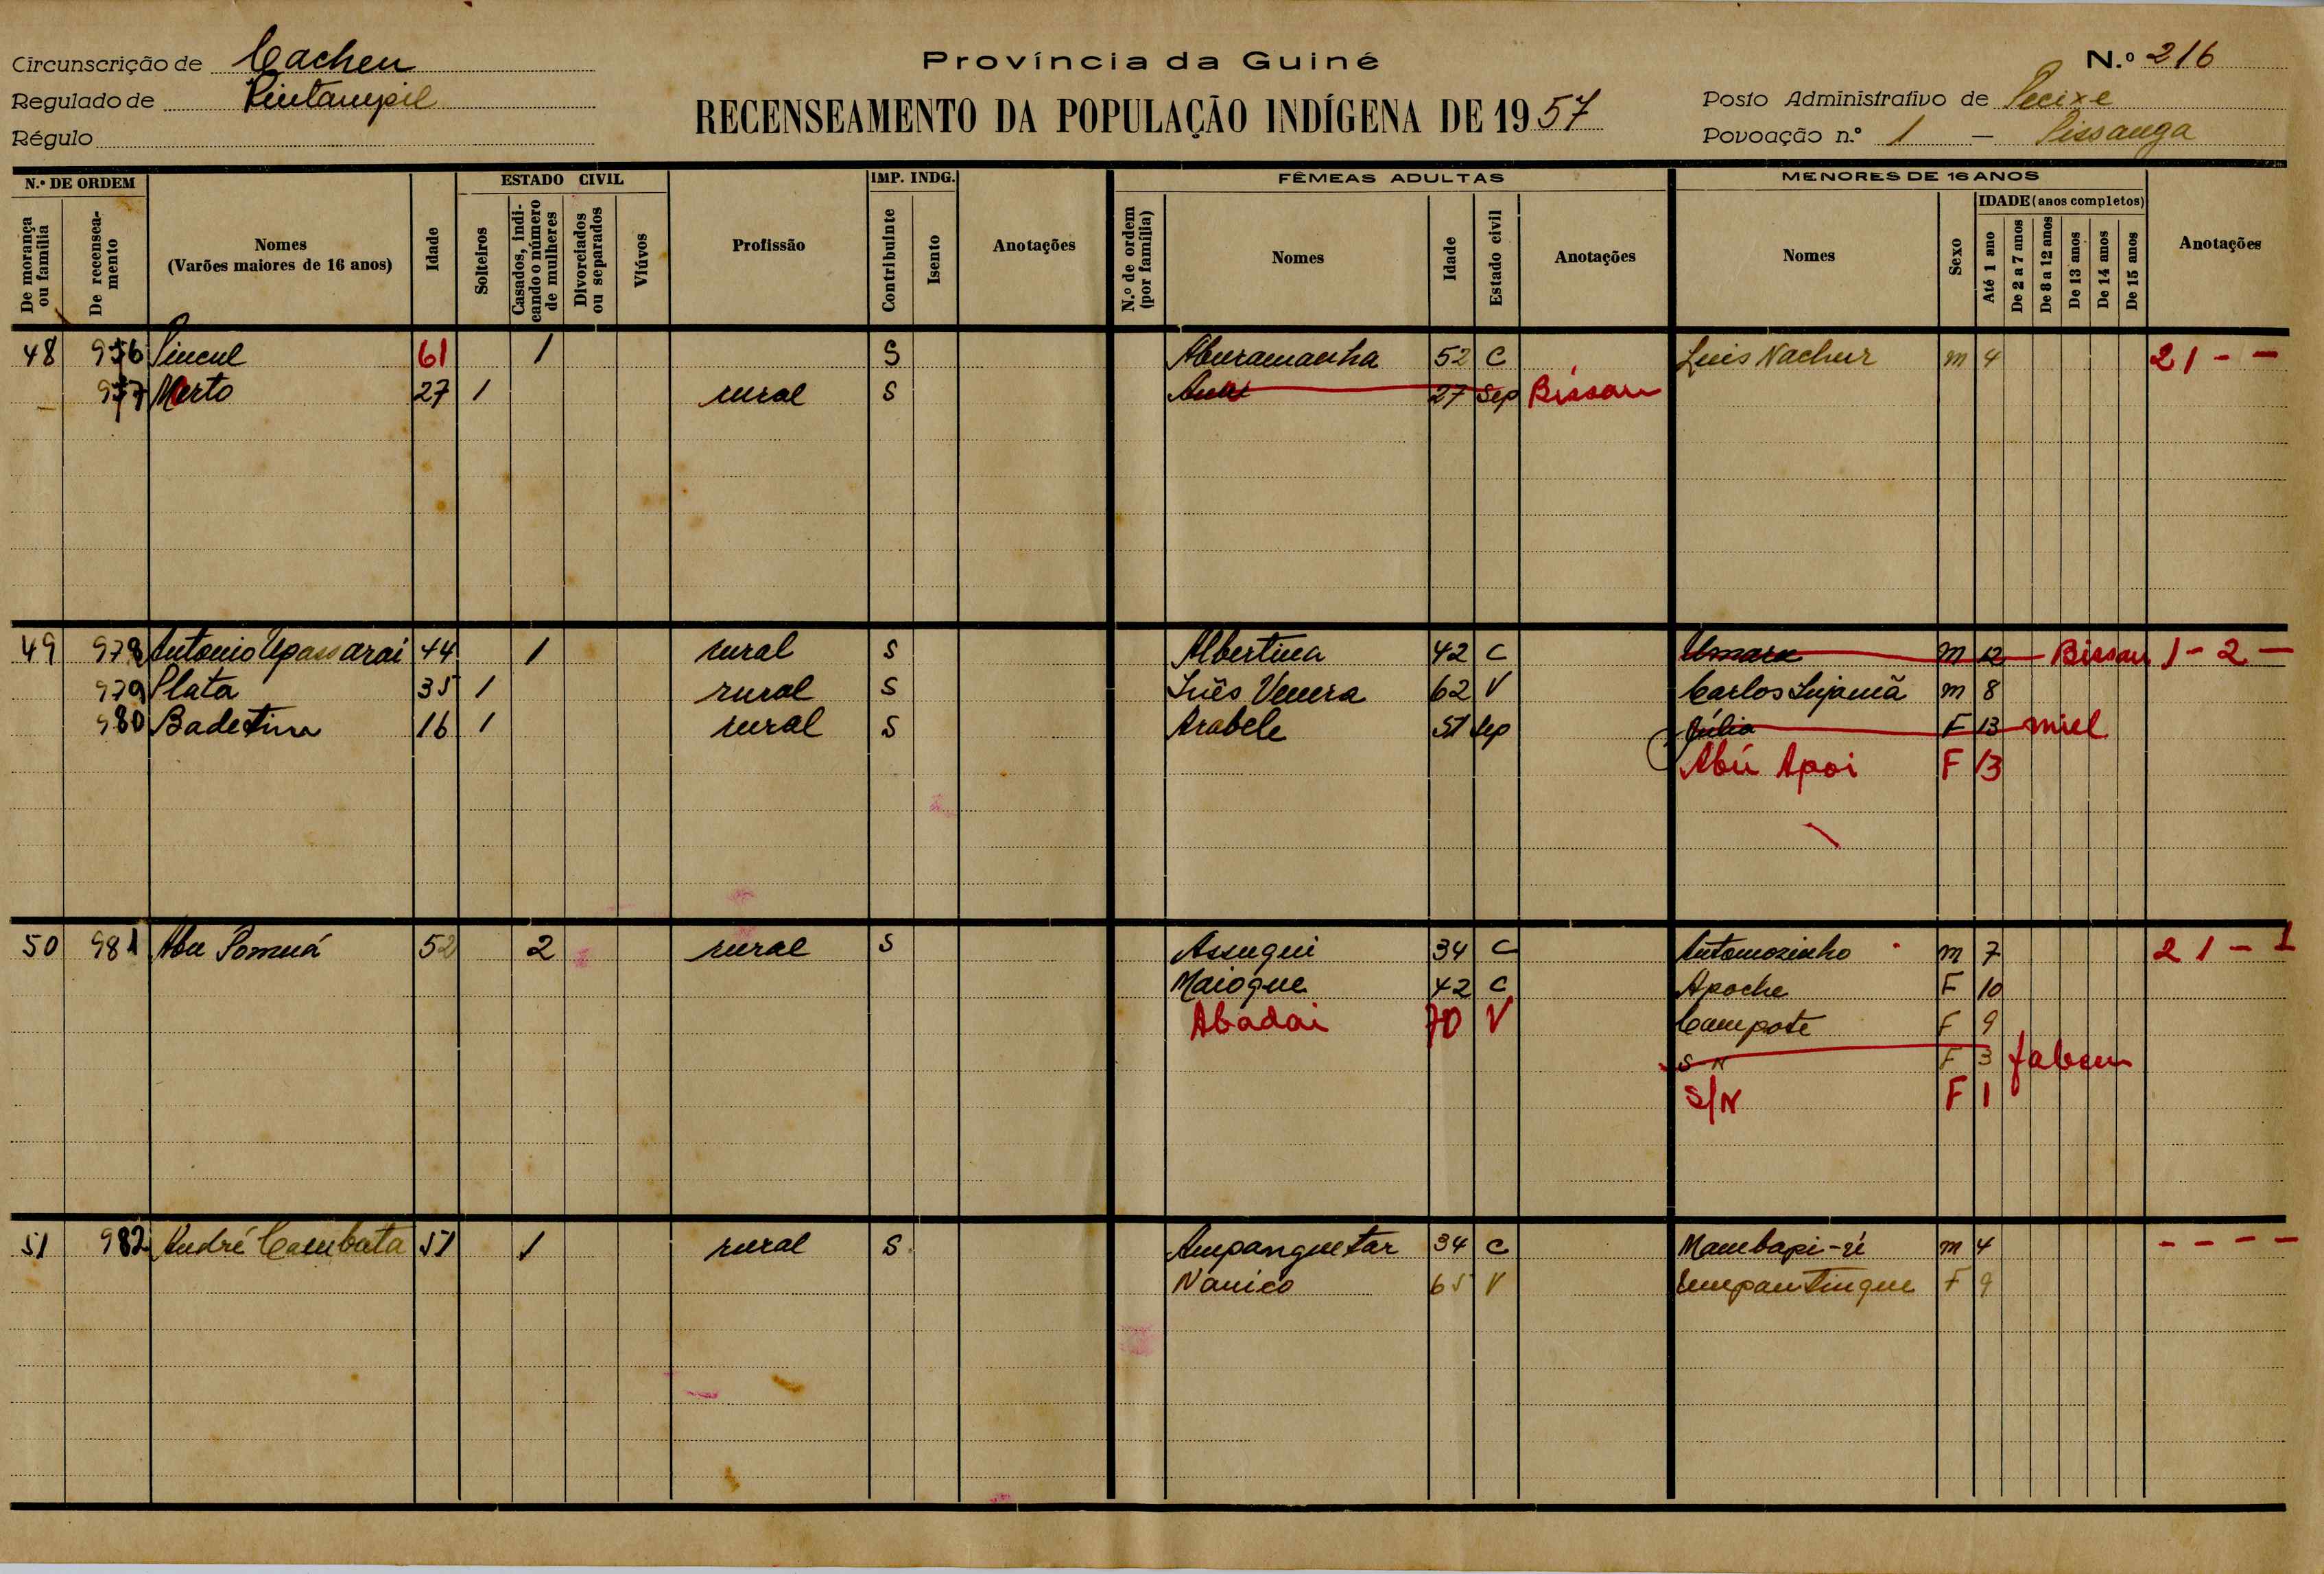 Circunscrição de Cacheu
Província da Guiné
N.º 216
Regulado de Pintampil
RECENSEAMENTO DA POPULAÇÃO INDÍGENA DE 1957
Posto Administrativo de Pecixe
Régulo
Povoação n.º 1 — Pissanga
N.º DE ORDEM
ESTADO CIVIL
IMP. INDG.
FÊMEAS ADULTAS
MENORES DE 16 ANOS
De morança ou família
De recenseamento
Nomes
(Varões maiores de 16 anos)
Idade
Solteiros
Casados, indicando o número de mulheres
Divorciados ou separados
Viúvos
Profissão
Contribuinte
Isento
Anotações
N.º de ordem (por família)
Nomes
Idade
Estado civil
Anotações
Nomes
Sexo
IDADE (anos completos)
Até 1 ano
De 2 a 7 anos
De 8 a 12 anos
De 13 anos
De 14 anos
De 15 anos
Anotações
48 976 Pincul 61 1 S Aburamanha 52 C Luis Nachur m 4 21 - -
977 Merto 27 1 rural S 27 Sep Bissau
49 978 Antonio Upassarai 44 1 rural S Albertina 42 C Umara m 12 Bissau 1 - 2 -
979 Plata 35 1 rural S Inês Venera 62 V Carlos Injamã m 8
980 Badetim 16 1 rural S Arabele 51 Sep Júlia F 13 miel
Abú Apoi F 13
50 981 Abu Pomuá 52 2 rural S Assugui 34 C Antomozinho m 7 2 1 - 1
Maiogue 42 C Apoche F 10
Abadai 70 V Campote F 9
S N F 3 faleceu
S/N F 1
51 982 André Cambata 51 1 rural S Ampanguetar 34 C Mambapi-ri m 4 - - - -
Nanico 65 V Empantingue F 9